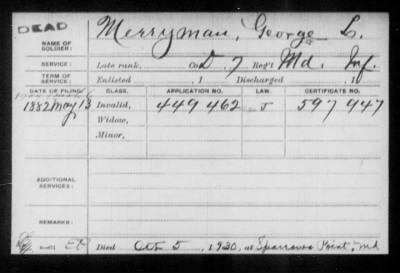 DEAD
NAME OF SOLDIER: Merryman, George L.
SERVICE: Late rank, Co. D, 7 Reg't Md. Inf.
TERM OF SERVICE: Enlisted , 1 Discharged , 1
DATE OF FILING. CLASS. APPLICATION NO. LAW. CERTIFICATE NO.
1882 May 13 Invalid, 449 462 J 597 947
Widow,
Minor,
ADDITIONAL SERVICES:
REMARKS:
Died Oct. 5, 1920, at Sparrows Point, Md